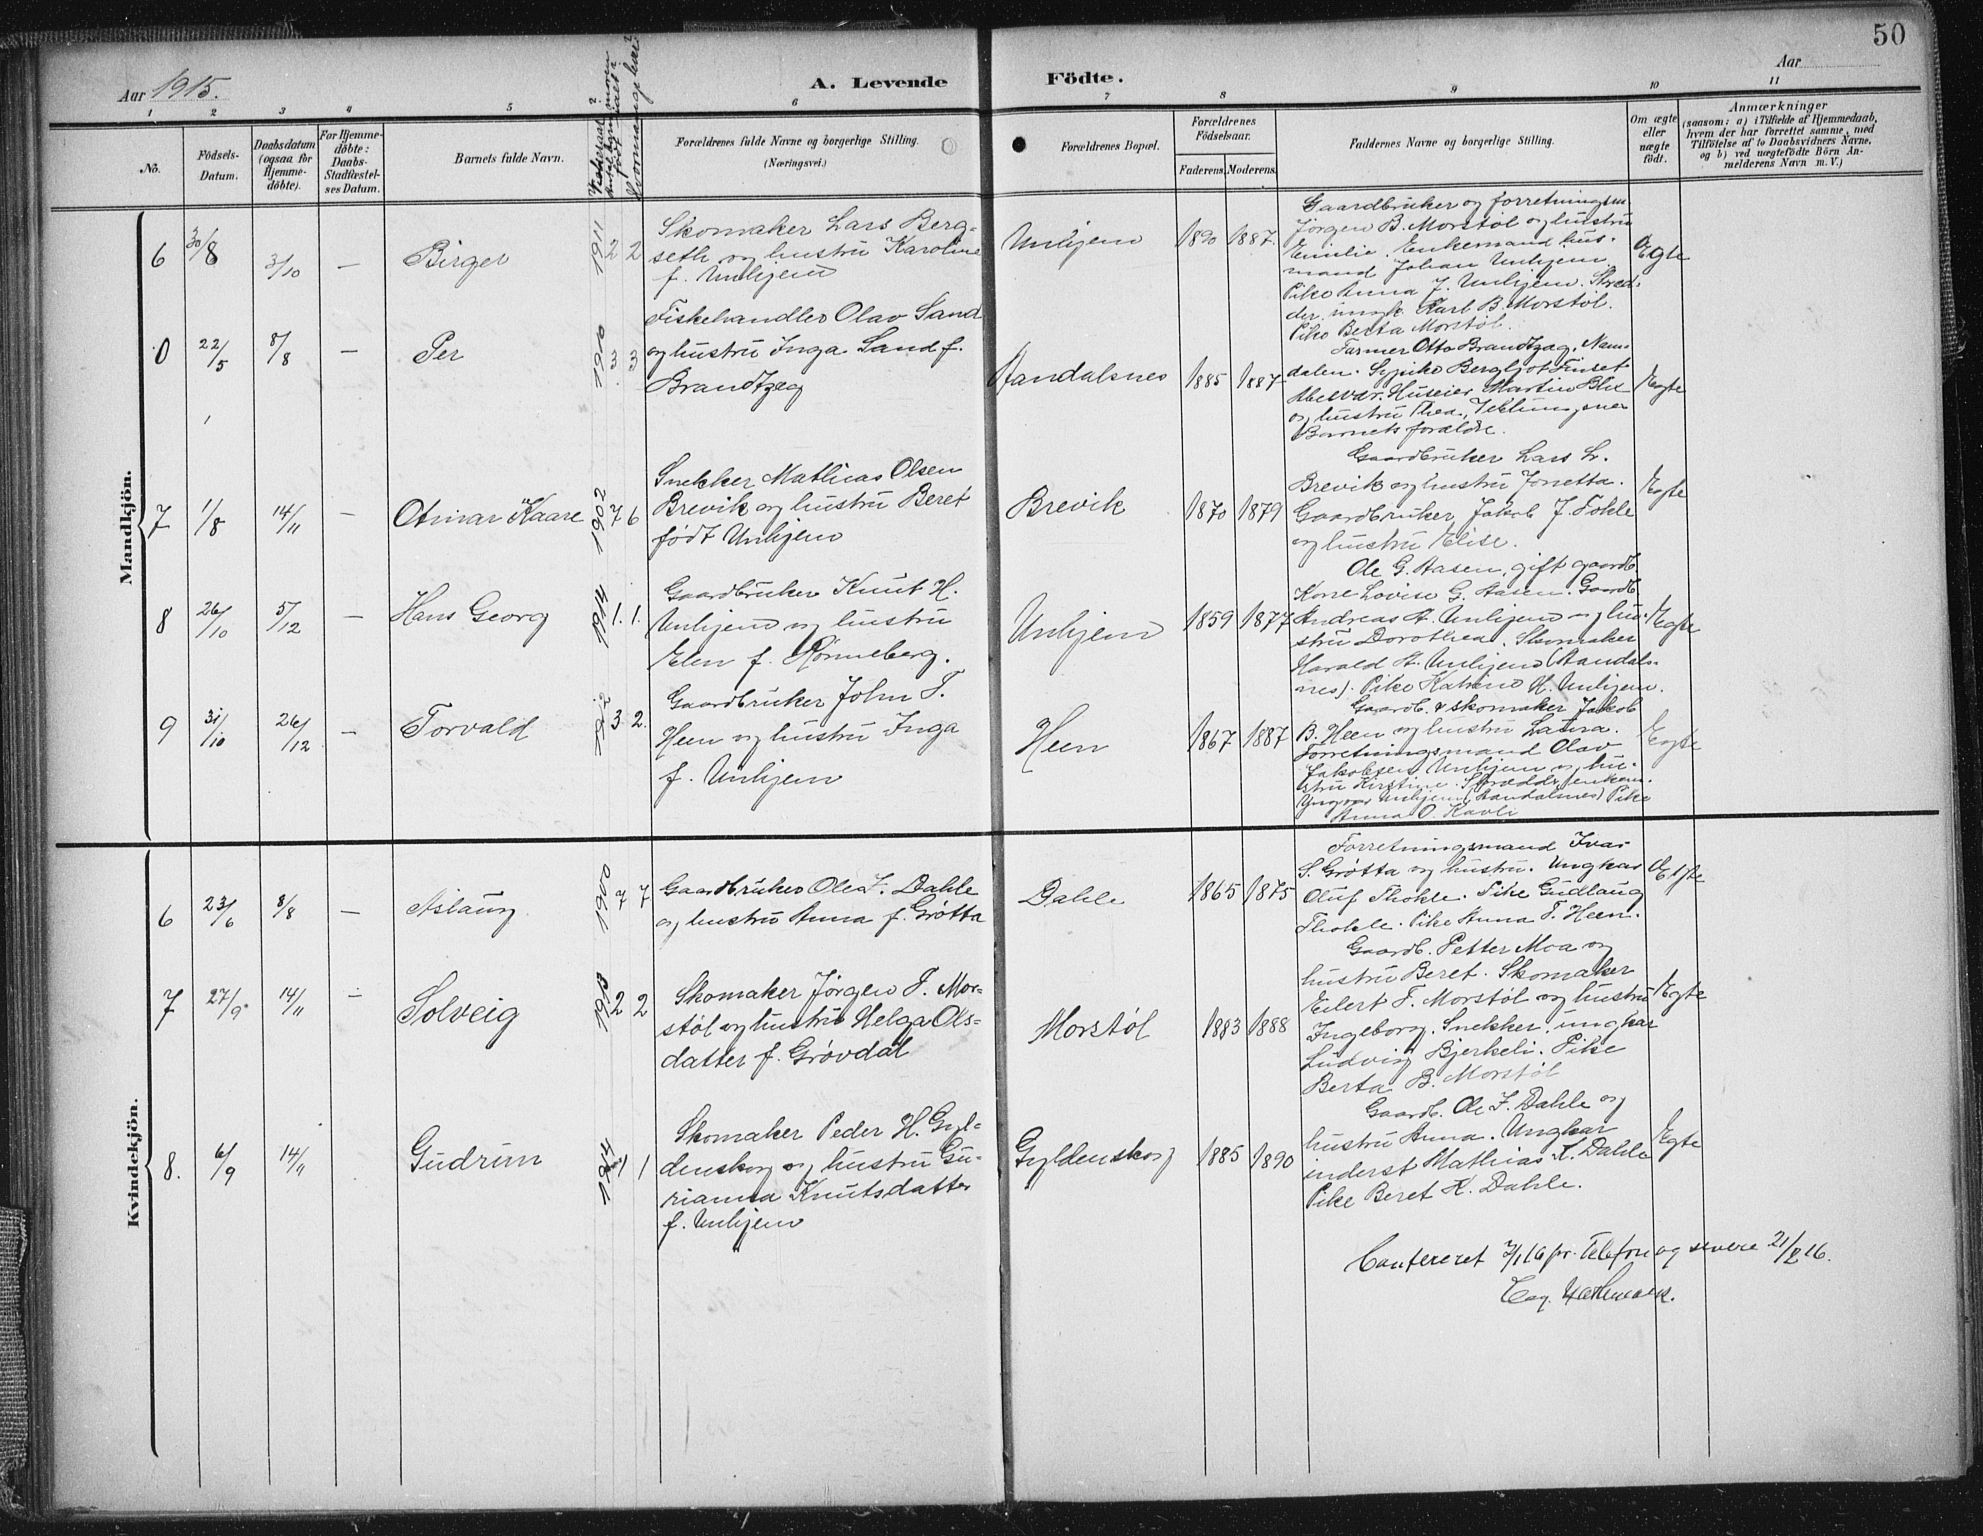 50
Aar 1915.
A. Levende Födte.
Aar
1 2 3 4 5 6 7 8 9 10 11
No.
Födsels-Datum.
Daabsdatum (ogsaa for Hjemme-döbte).
For Hjemme-döbte: Daabs-Stadfæstel-ses Datum.
Barnets fulde Navn.
Forældrenes fulde Navne og borgerlige Stilling.
(Næringsvei.)
Forældrenes Bopæl.
Forældrenes Födselsaar.
Faderens. Moderens.
Faddernes Navne og borgerlige Stilling.
Om ægte eller uægte födt.
Anmærkninger
(saasom: a) i Tilfælde af Hjemmedaab,
hvem der har forrettet samme, med
Tilföielse af to Daabsvidners Navne,
og b) ved uægtefödte Börn An-
melderens Navn m. V.)
Mandkjön.
6 30/8 3/10 — Birger 1911 2 2
Skomaker Lars Berg-
seth og hustru Karoline
f. Unhjem
Unhjem 1890 1887.
Gaardbruker og forretningsm.
Jörgen B. Morstöl og hustru
Emilie. Enkemand hus-
mand Johan Unhjem.
Pike Anna J. Unhjem. Skræd-
der, ungk. Karl B. Morstöl.
Pike Berta Morstöl.
Ægte
0 22/5 8/8 — Per 1910 3 3
Fiskehandler Olav Sand
og hustru Inga Sand f.
Brandtzæg
Aandalsnes 1885 1887
Farmer Otto Brandtzæg, Nam-
dalen. Sypike Bergljot Finset
Huseier Martin Blix
og hustru Thea, Veblungsnes
Barnets forældre.
Ægte
7 1/8 14/11 — Otmar Kaare 1902 7 6
Snekker Mathias Olsen
Brevik og hustru Beret
født Unhjem
Brevik 1870 1879
Gaardbruker Lars L.
Brevik og hustru Jonetta.
Gaardbruker Jakob J. Tokle
og hustru Elise.
Ægte
8 26/10 5/12 — Hans Georg 1914 1. 1.
Gaardbruker Knut H.
Unhjem og hustru
Elen f. Rønneberg.
Unhjem 1859 1877
Ole G. Aasen, gift gaardb.
Kone Lovise G. Aasen. Gaardb.
Andreas A. Unhjem og hu-
stru Dorothea. Skomaker
Harald H. Unhjem (Aandals-
nes). Pike Katrine H. Unhjem.
Ægte
9 31/10 26/12 — Torvald 1912 3. 2.
Gaardbruker John T.
Heen og hustru Inga
f. Unhjem
Heen 1867 1887
Gaardb. & skomaker Jakob
B. Heen og hustru Laura.
Forretningsmand Olav
Jakobsen Unhjem og hu-
stru Kirstine. Skrædder, enkem.
Yngvar Unhjem (Aandalsnes) Pike
Anna O Kavli
Ægte
Kvindekjön.
6 23/6 8/8 — Aslaug 1900 7 7
Gaardbruker Ole J. Dahle
og hustru Anna f. Grøtta
Dahle 1865 1875
Forretningsmand Ivar
S. Grøtta og hustru. Ungkar
Oluf Thokle. Pike Gudlaug
Thokle. Pike Anna T. Heen.
Ægte
7 27/9 14/11 — Solveig 1913 2 2
Skomaker Jørgen T. Mor-
støl og hustru Helga Ols-
datter f. Grøvdal
Morstøl 1883 1888
Gaardb. Petter Moa og
hustru Beret. Skomaker
Eilert T. Morstøl og hustru
Ingeborg. Snekker, ungkar
Ludvig Bjerkeli. Pike
Berta B. Morstøl
Ægte
8. 6/9 14/11 Gudrun 1914 1 1
Skomaker Peder H. Gyl-
denskog og hustru Gu-
rianna Knutsdatter
f. Unhjem
Gyldenskog 1885 1890
Gaardb. Ole J. Dahle og
hustru Anna. Ungkar
underst Mathias K. Dahle
Pike Beret K. Dahle.
Ægte
pr. Telefon og senere 21/2 16.